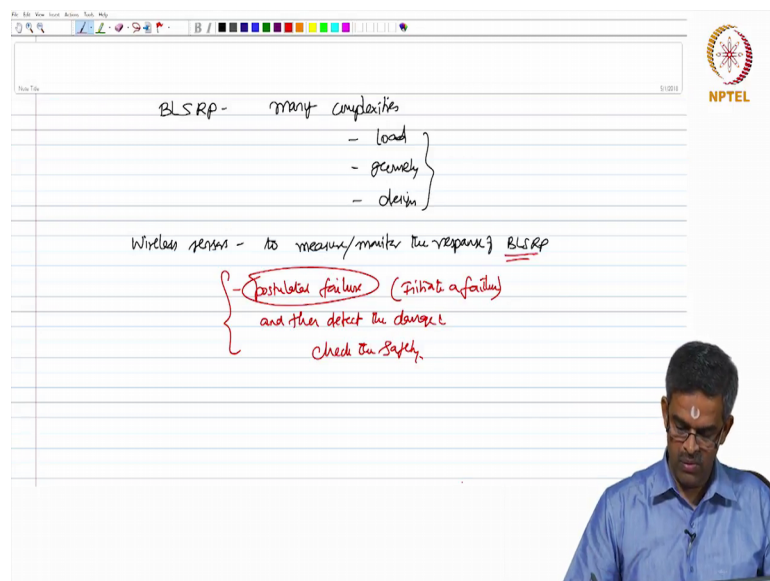 File Edit View Insert Actions Tools Help
B I
Note Title
5/1/2018
NPTEL
BLSRP - many complexities
- load
- geometry
- design
Wireless sensors - to measure/monitor the response of BLSRP
- postulated failure (initiate a failure)
and then detect the damage &
check the safety.